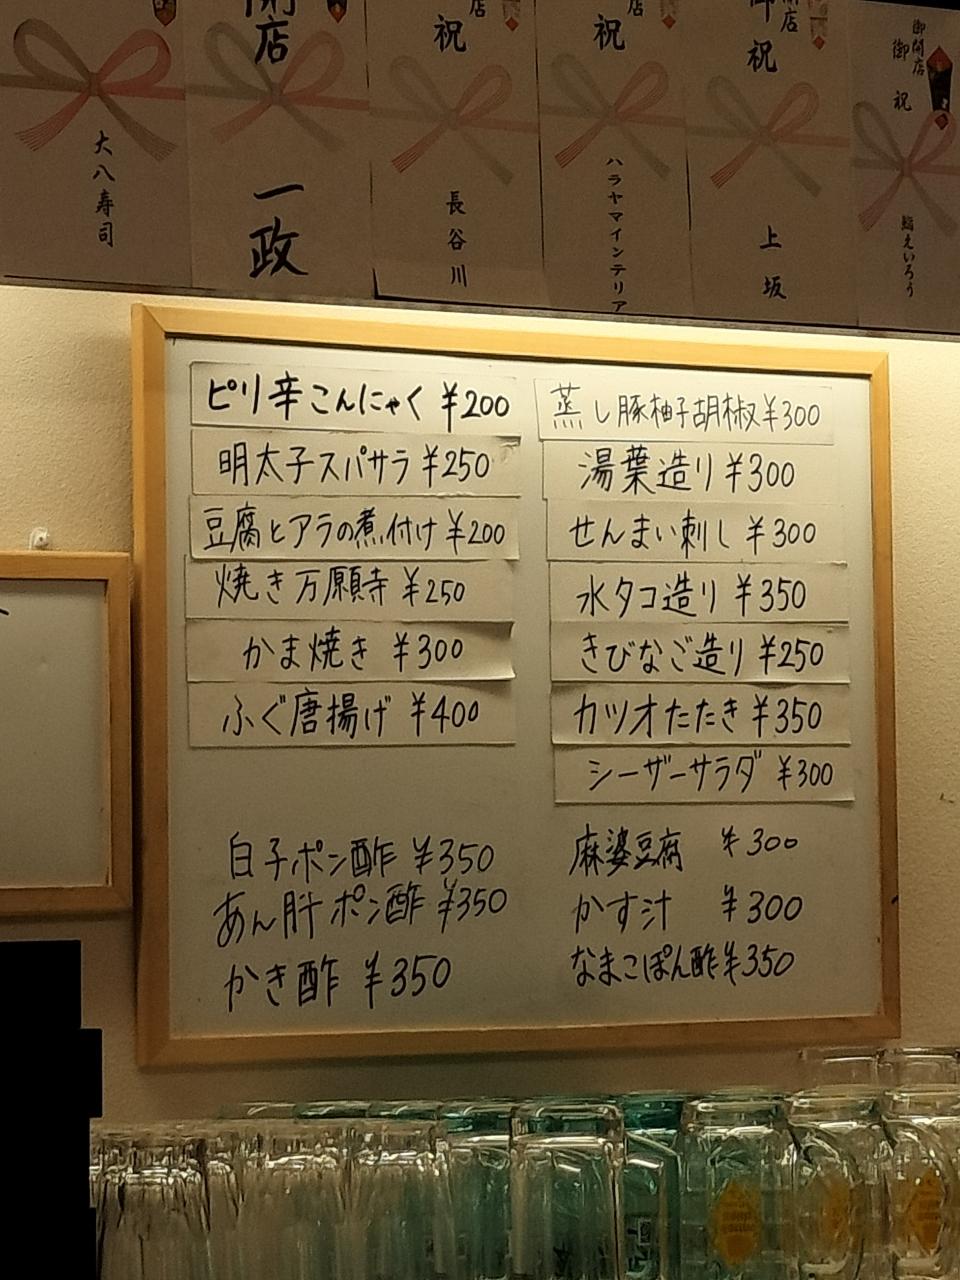 大八寿司
開店
一政
店
祝
長谷川
店
祝
ハラヤマインテリア
御開店
祝
上坂
御開店
御祝
鮨えいろう
ピリ辛こんにゃく ¥200
明太子スパサラ ¥250
豆腐とアラの煮付け ¥200
焼き万願寺 ¥250
かま焼き ¥300
ふぐ唐揚げ ¥400
白子ポン酢 ¥350
あん肝ポン酢 ¥350
かき酢 ¥350
蒸し豚柚子胡椒 ¥300
湯葉造り ¥300
せんまい刺し ¥300
水タコ造り ¥350
きびなご造り ¥250
カツオたたき ¥350
シーザーサラダ ¥300
麻婆豆腐 ¥300
かす汁 ¥300
なまこぽん酢 ¥350